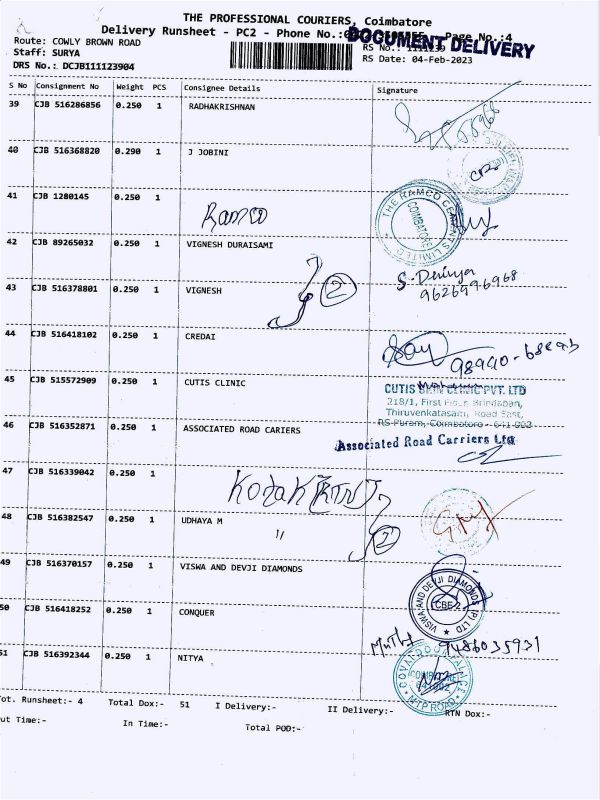 THE PROFESSIONAL COURIERS, Coimbatore
Delivery Runsheet - PC2 - Phone No.: Page No.:4
DOCUMENT DELIVERY
Route: COWLY BROWN ROAD
RS No.: 1111239
Staff: SURYA
RS Date: 04-Feb-2023
DRS No.: DCJB111123904
S No Consignment No Weight PCS Consignee Details Signature
39 CJB 516286856 0.250 1 RADHAKRISHNAN
40 CJB 516368820 0.290 1 J JOBINI
41 CJB 1280145 0.250 1
Ramco
THE RAMCO CEMENTS LIMITED
COIMBATORE
42 CJB 89265032 0.250 1 VIGNESH DURAISAMI
43 CJB 516378801 0.250 1 VIGNESH
2
9626996968
44 CJB 516418102 0.250 1 CREDAI
45 CJB 515572909 0.250 1 CUTIS CLINIC
CUTIS SKIN CLINIC PVT. LTD
218/1, First Floor, Brindaban,
Thiruvenkatasami, Road East,
RS Puram, Coimbatore - 641 002
46 CJB 516352871 0.250 1 ASSOCIATED ROAD CARIERS
Associated Road Carriers Ltd
47 CJB 516339042 0.250 1
Kotak
48 CJB 516382547 0.250 1 UDHAYA M
2
49 CJB 516370157 0.250 1 VISWA AND DEVJI DIAMONDS
VISWA AND DEVJI DIAMONDS (P) LTD
CBE-2
50 CJB 516418252 0.250 1 CONQUER
9486035931
51 CJB 516392344 0.250 1 NITYA
MTP ROAD
Tot. Runsheet:- 4 Total Dox:- 51 I Delivery:- II Delivery:- RTN Dox:-
Out Time:- In Time:- Total POD:-